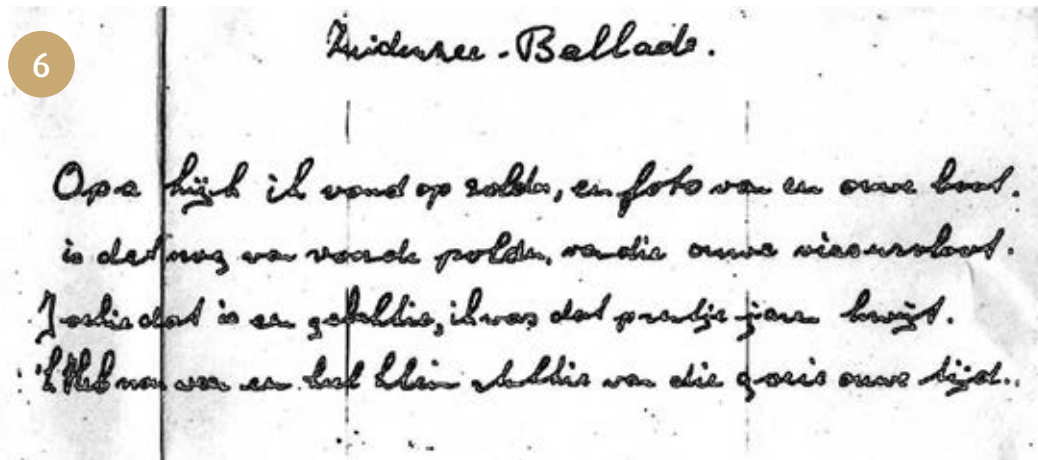 6
Zuiderzee - Ballade.
Opa kijk ik vond op zolder, en foto van en ouwe boot.
is dat nog van voor de polder, van die ouwe vissersvloot.
Jochie dat is en gelukkie, ik was dat prentje jaren kwijt.
'k Heb nou weer en heel klein stukkie van die goeie ouwe tijd..